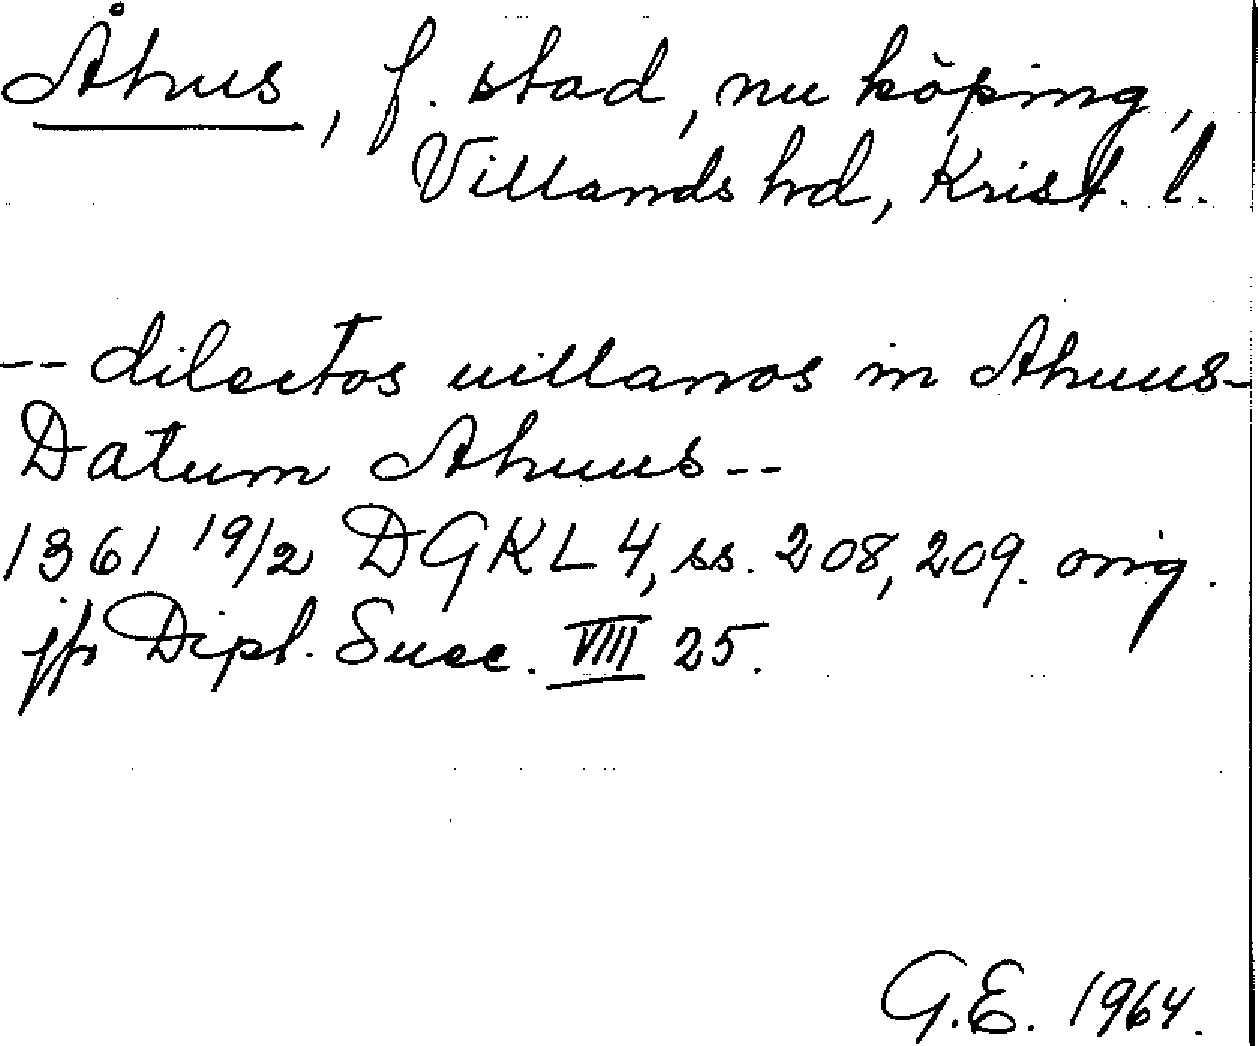 Åhus, f. stad, nu köping,
Villands hd, Krist. l.
-- dilectos uillanos in Ahuus-
Datum Ahuus--
1361 19/2 DGKL 4, ss. 208, 209. orig.
jfr Dipl. Suec. VIII 25.
G.E. 1964.